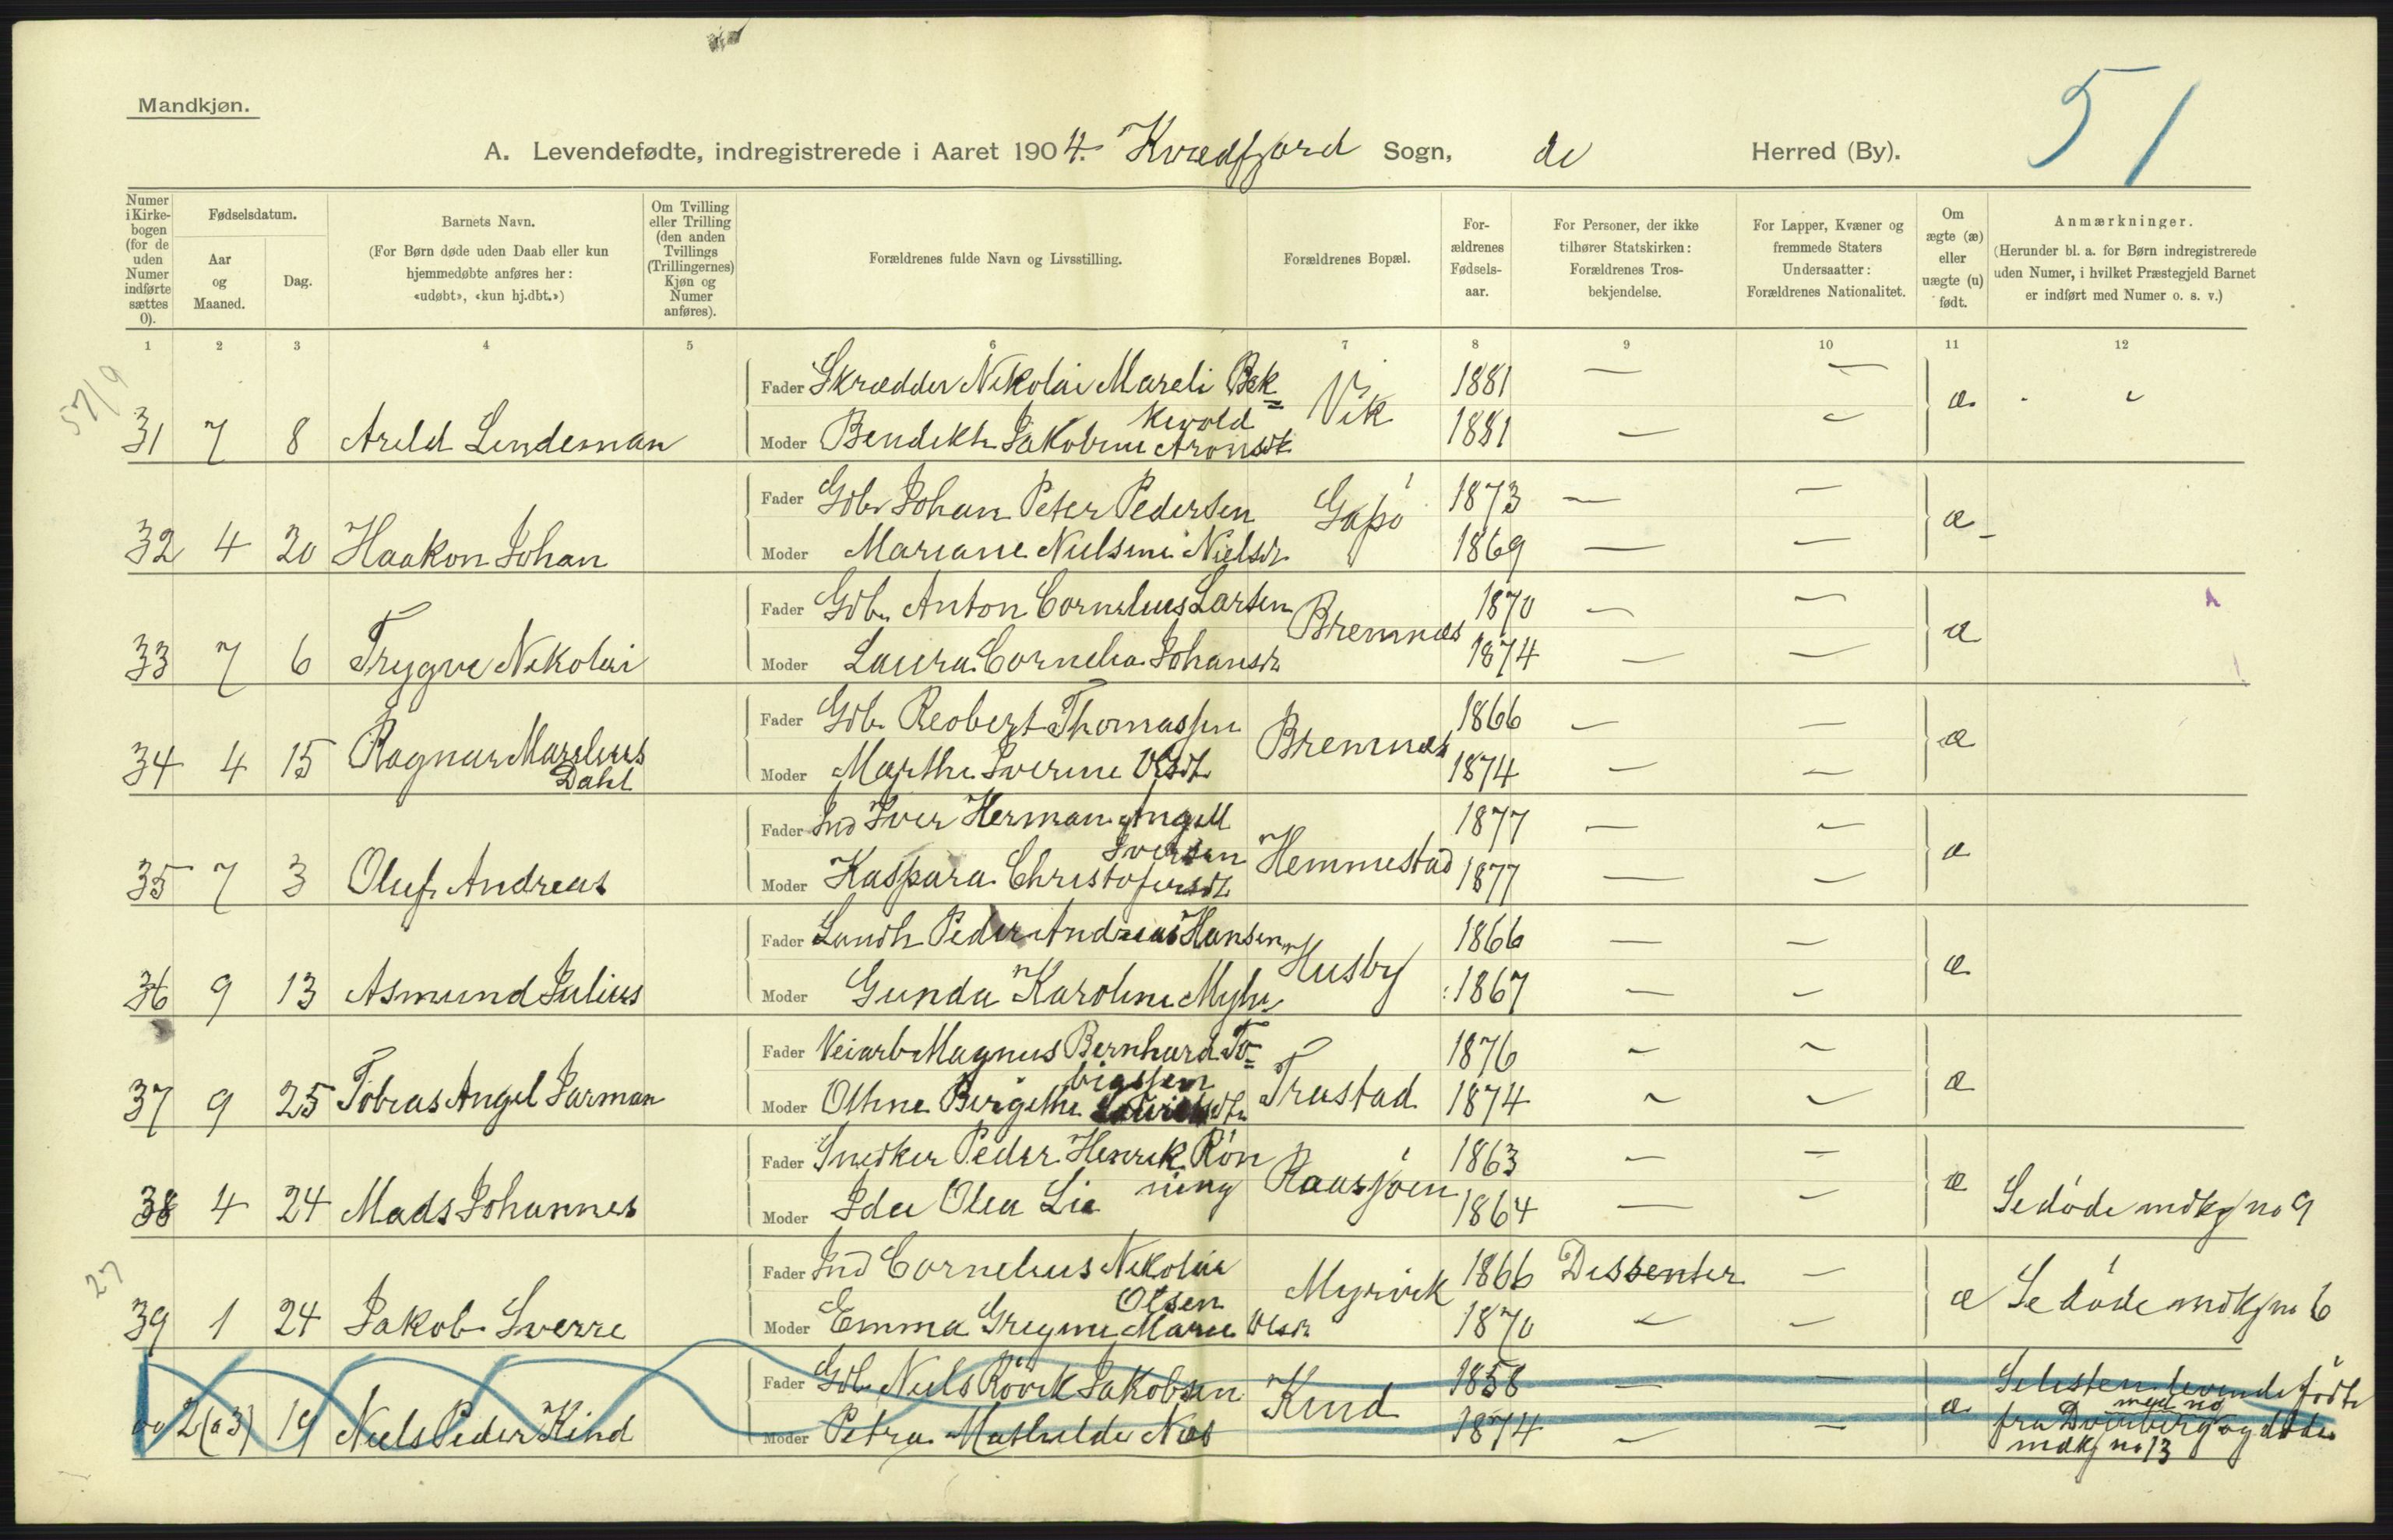 Mandkjøn.
51
A. Levendefødte, indregistrerede i Aaret 1904. Kvædfjord Sogn, do Herred (By).
Numer i Kirkebogen (for de uden Numer indførte sættes 0).
Fødselsdatum.
Aar og Maaned.
Dag.
Barnets Navn.
(For Børn døde uden Daab eller kun hjemmedøbte anføres her: «udøbt», «kun hj.dbt.»)
Om Tvilling eller Trilling (den anden Tvillings (Trillingernes) Kjøn og Numer anføres).
Forældrenes fulde Navn og Livsstilling.
Forældrenes Bopæl.
Forældrenes Fødselsaar.
For Personer, der ikke tilhører Statskirken: Forældrenes Trosbekjendelse.
For Lapper, Kvæner og fremmede Staters Undersaatter: Forældrenes Nationalitet.
Om ægte (æ) eller uægte (u) født.
Anmærkninger.
(Herunder bl. a. for Børn indregistrerede uden Numer, i hvilket Præstegjeld Barnet er indført med Numer o. s. v.)
1 2 3 4 5 6 7 8 9 10 11 12
57/9
Fader Skrædder Nikolai Mareli Bek= Vik 1881 — — æ
kevold
31 7 8 Arild Lindeman Moder Bendikte Jakobine Aronsdt 1881 — —
Fader Gdb. Johan Peter Pedersen Gapø 1873 — — æ
32 4 20 Haakon Johan Moder Mariane Nielsine Nielsdt 1869 — —
Fader Gdb. Anton Cornelius Larsen Bremnæs 1870 — — æ
33 7 6 Trygve Nikolai Moder Laura Cornelia Johansdt 1874 — —
Fader Gdb. Reobert Thomassen Bremnæs 1866 — — æ
34 4 15 Ragnar Marelius Dahl Moder Marthe Sverine Olsdt 1874 — —
Fader Ind Iver Herman Angell Hemmestad 1877 — — æ
Iversen
35 7 3 Oluf Andreas Moder Kaspara Christofersdt 1877 — —
Fader Landh Peder Andreas Hansen Husby 1866 — — æ
36 9 13 Asmund Julius Moder Gunda Karoline Myhre 1867 — —
Fader Veiarb Magnus Bernhard To= Trastad 1876 — — æ
biassen
37 9 25 Tobias Angel Jarman Moder Othne Bergithe 1874 — —
Fader Snedker Peder Henrik Røn Raasjøen 1863 — — æ
ning
38 4 24 Mads Johannes Moder Ida Olea Lie 1864 — — Se døde mdkj no 9
27
Fader Ind Cornelius Nikolai Myrvik 1866 Dissenter — æ
Olsen
39 1 24 Jakob Sverre Moder Emma Gregine Marie Olsdt 1870 — — Se døde mdkj no 6
Fader Gdb. Niels Røvik Jakobsen Kind 1858 — — æ Se listen levendefødte
med no
2(a3) 19 Niels Peder Kind Moder Petra Mathilde Næs 1874 — — fra Dverberg og døde
mdkj no 13